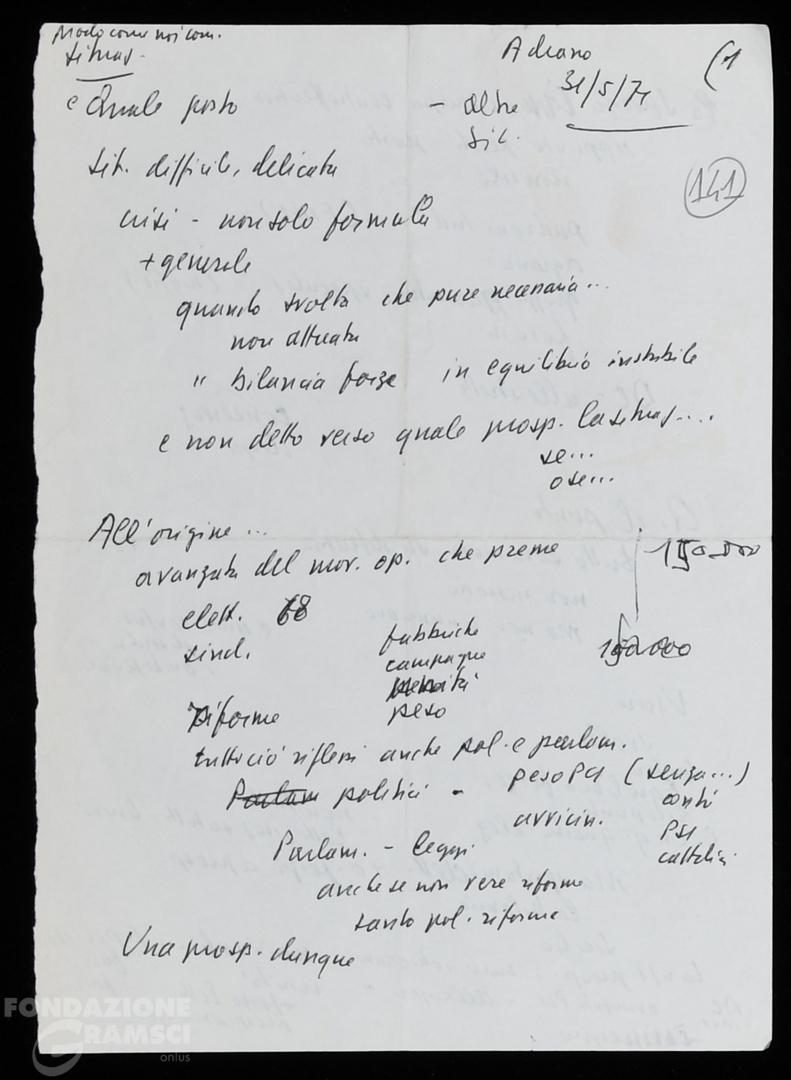 Modo come noi com.
situaz.
Adriano
31/5/71
(1
e Quale posto
- altre
sit.
141
sit. difficile, delicata
crisi - non solo formula
+ generale
quando svolta che pure necessaria...
non attuata
" bilancia forze in equilibrio instabile
e non detto verso quale prosp. la situaz....
se...
o se...
All'origine...
avanzata del mov. op. che preme
150.000
elett. 68
sind.
fabbriche
campagne
150.000
peso
Riforme
tutto ciò riflessi anche pol. e parlam.
Parlam politici - peso PCI (senza...)
conti
avvicin.
PSI
cattolici
Parlam. - Leggi
anche se non vere riforme
tanto pol. riforme
Una prosp. dunque
FONDAZIONE
GRAMSCI
onlus